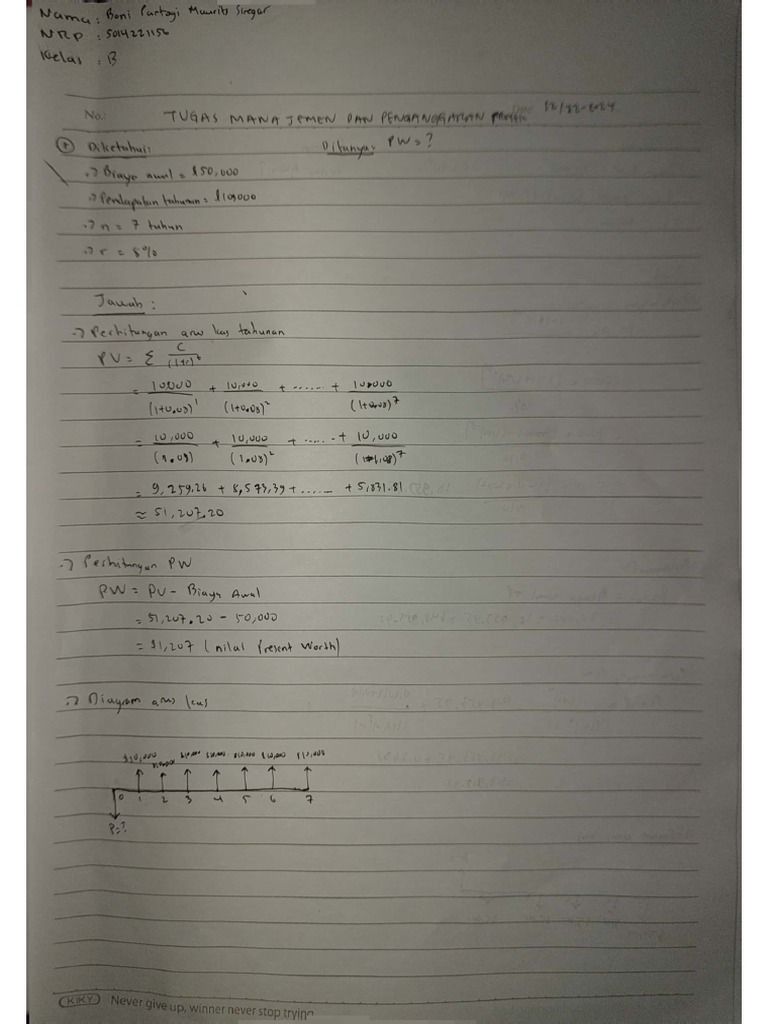 Nama : Boni Partogi Maurits Siregar
NRP : 5014221156
Kelas : B
No.: TUGAS MANAJEMEN DAN PENGANGGARAN
Diketahui: Ditanya: PW = ?
-> Biaya awal = $50,000
-> Pendapatan tahunan = $10,000
-> n = 7 tahun
-> r = 8%
Jawab :
-> Perhitungan arus kas tahunan
PV = Σ C/(1+r)^t
= 10,000/(1+0.08)^1 + 10,000/(1+0.08)^2 + ...... + 10,000/(1+0.08)^7
= 10,000/(1.08) + 10,000/(1.08)^2 + ...... + 10,000/(1.08)^7
= 9,259.26 + 8,573,39 + ...... + 5,831.81
≈ 51,207.20
-> Perhitungan PW
PW = PV - Biaya Awal
= 51,207.20 - 50,000
= $1,207 (nilai Present Worth)
-> Diagram arus kas
$10,000 $10,000 $10,000 $10,000 $10,000 $10,000 $10,000
0 1 2 3 4 5 6 7
P=?
KIKY Never give up, winner never stop trying